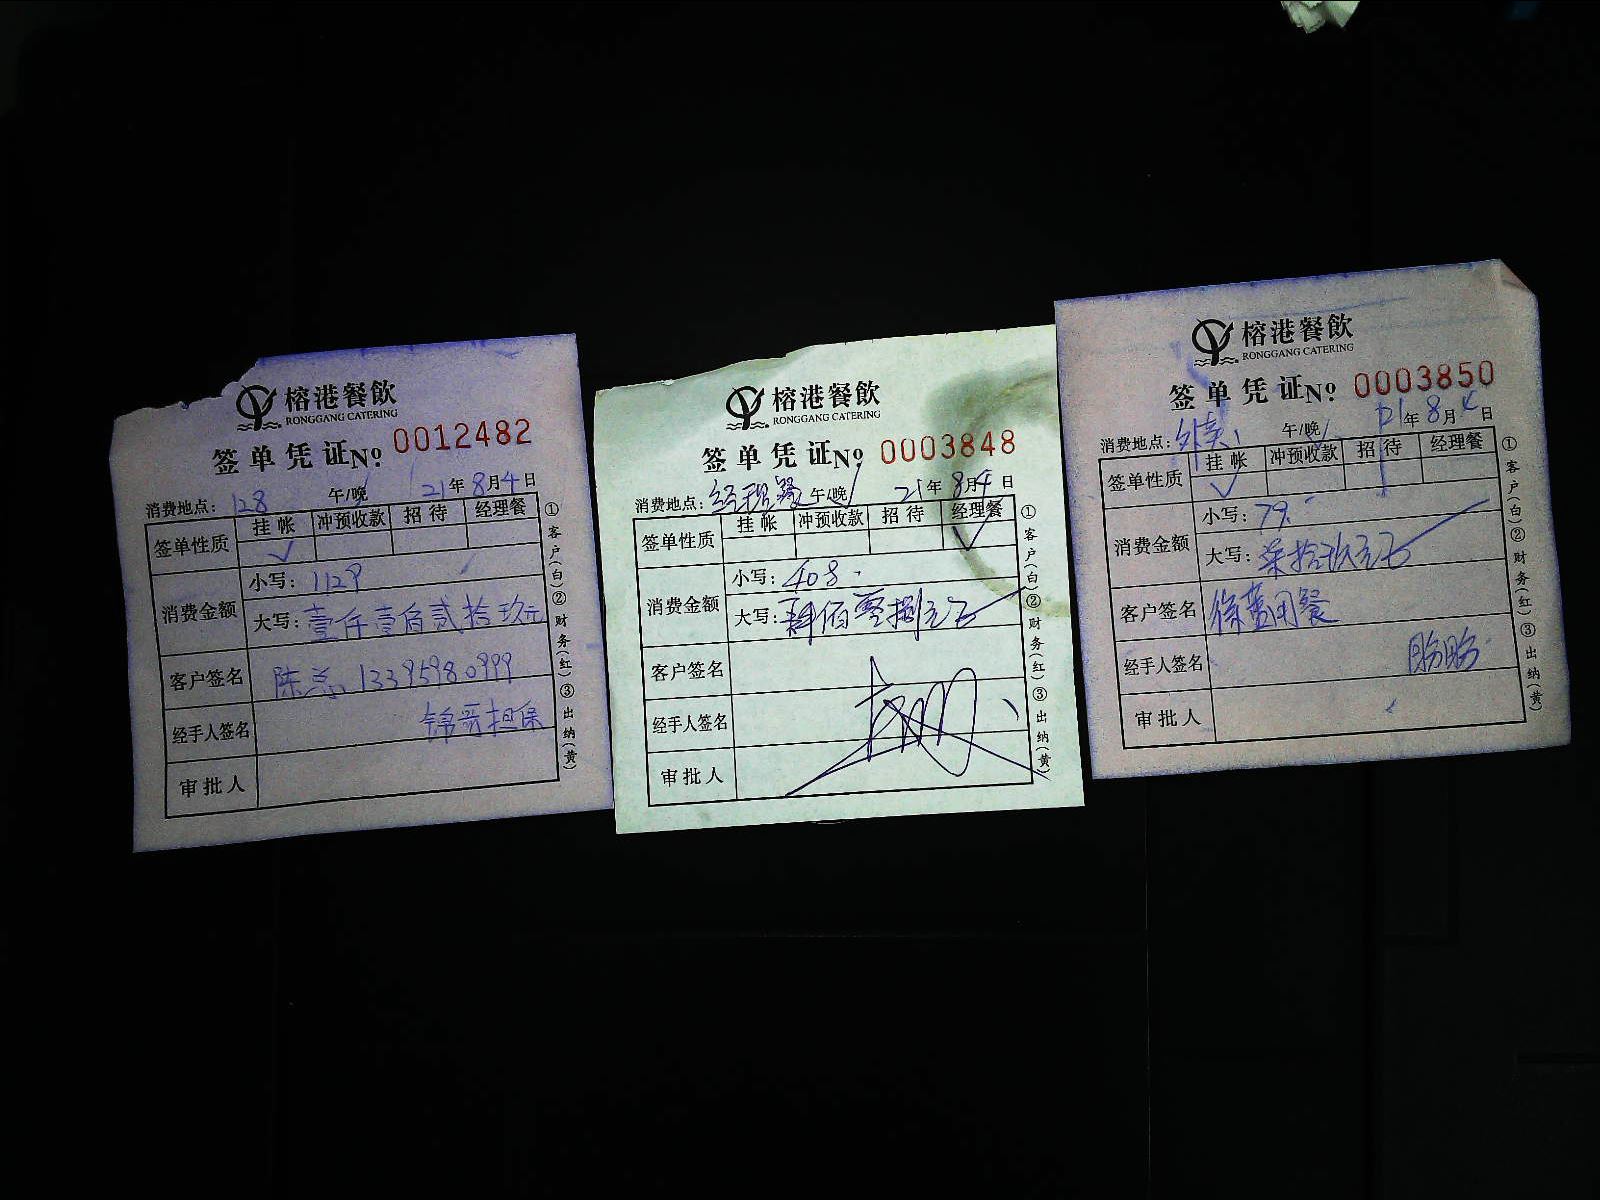 榕港餐飲
RONGGANG CATERING
签单凭证No. 0012482
消费地点: 128 午/晚 21年8月4日
签单性质 挂帐 冲预收款 招待 经理餐
✓
消费金额
小写: 1129
大写: 壹仟壹佰贰拾玖元
客户签名 陈总 13395980999
经手人签名 锦哥担保
审批人
①客户(白)②财务(红)③出纳(黄)
榕港餐飲
RONGGANG CATERING
签单凭证No. 0003848
消费地点: 经理餐 午/晚 21年8月4日
签单性质 挂帐 冲预收款 招待 经理餐
✓
消费金额
小写: 408.
大写: 肆佰零捌元正
客户签名
经手人签名
审批人
①客户(白)②财务(红)③出纳(黄)
榕港餐飲
RONGGANG CATERING
签单凭证No. 0003850
消费地点: 外卖 午/晚 21年8月4日
签单性质 挂帐 冲预收款 招待 经理餐
✓
消费金额
小写: 79.
大写: 柒拾玖元正
客户签名 徐 用餐
经手人签名
审批人
①客户(白)②财务(红)③出纳(黄)